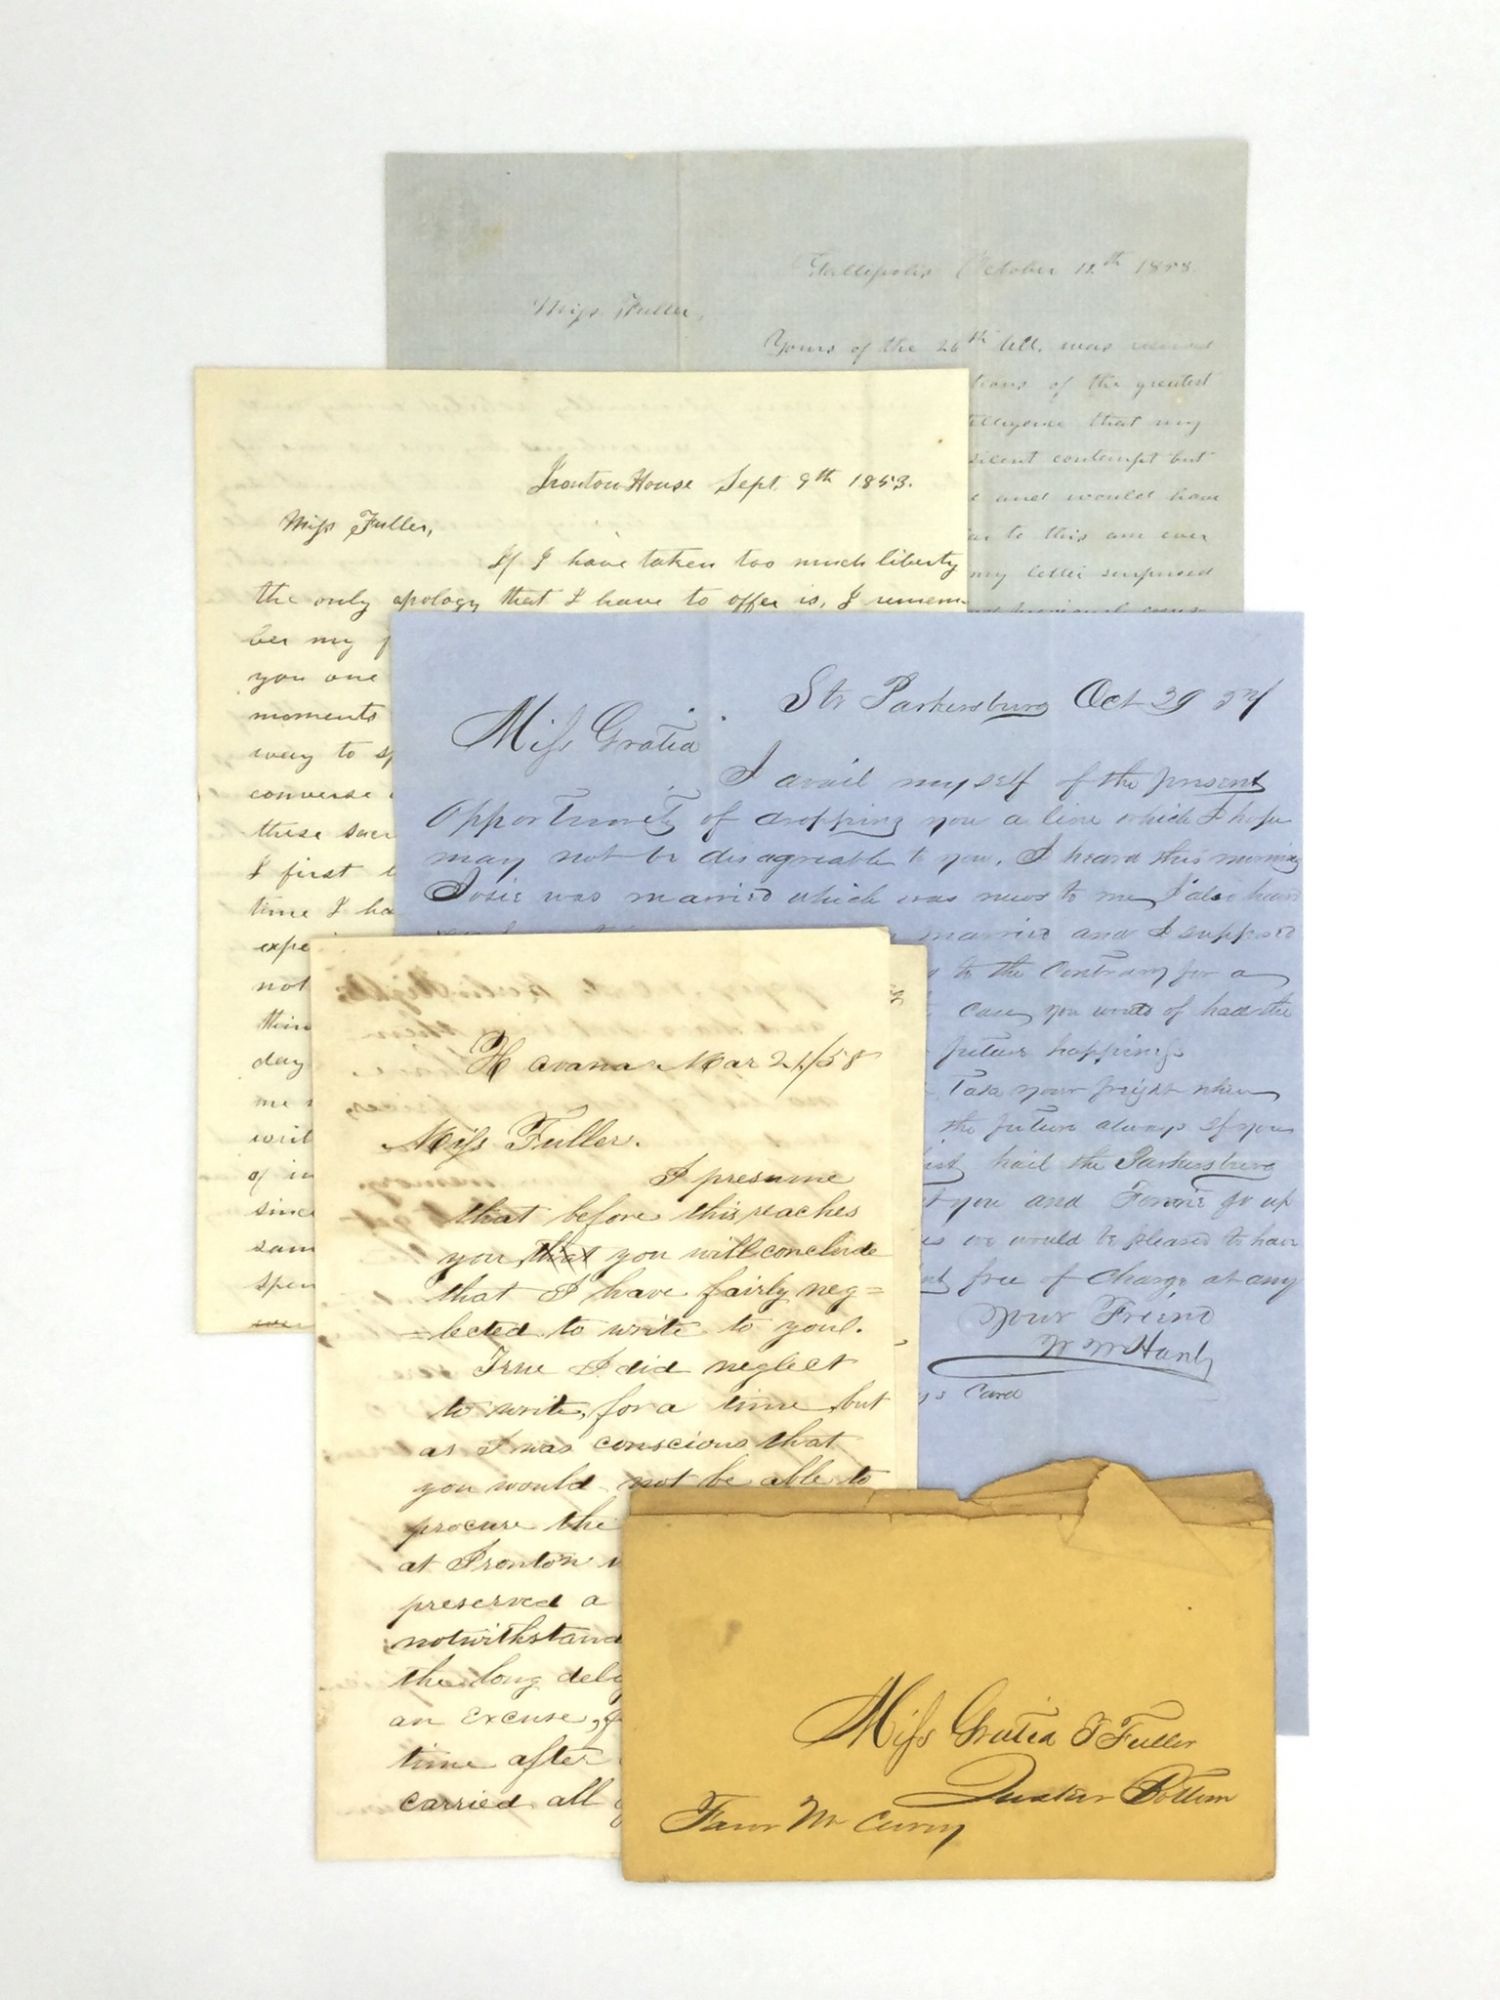 Gallipolis October 12th 1858
Miss Fuller,
Yours of the 26th ult. was received
tions of the greatest
that my
silent contempt but
and would have
to this am ever
my letter surprised
Ironton House Sept. 9th 1853.
Miss Fuller,
If I have taken too much liberty
the only apology that I have to offer is, I remem-
ber my
you one
moments
way to
converse
these
I first
time I ha
expe
not
thin
day
me
writ
of in
since
sam
spen
Str Parkersburg Oct 29
Miss Gratia
I avail myself of the present
opportunity of dropping you a line which I hope
may not be disagreeable to you. I heard this morning
Josie was married which was news to me I also heard
married and I supposed
to the contrary for a
case you would of had the
future happiness
Take your freight when
the future always if you
hail the Parkersburg
you and Fannie go up
we would be pleased to have
free of charge at any
Your Friend
Card
Havana Mar 21/58
Miss Fuller.
I presume
that before this reaches
you that you will conclude
that I have fairly neg=
=lected to write to you.
True I did neglect
to write, for a time, but
as I was conscious that
you would not be able to
procure the
at Ironton
preserved a
notwithstand
the long dela
an excuse,
time after
carried all
Miss Gratia T Fuller
Quaker Bottom
Favor Mr Curry